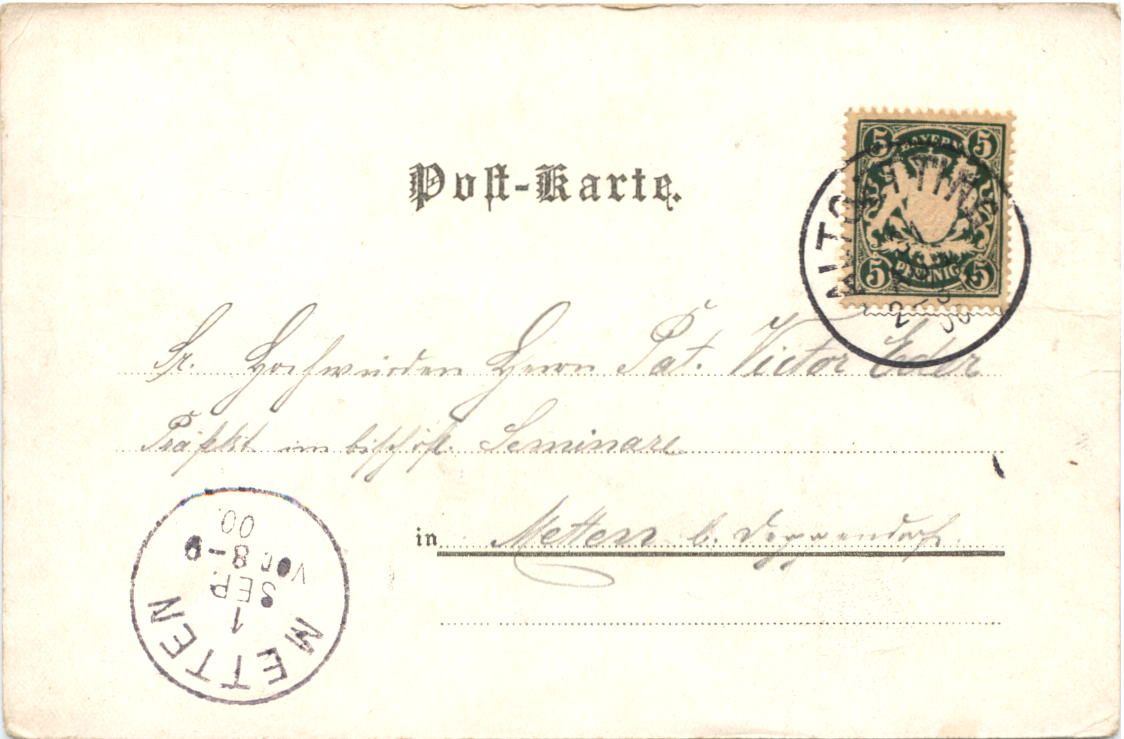 Post-Karte.
5 BAYERN 5
5 PFENNIG 5
ALTOETTING
2-3
00
Sr. Hochwürden Herrn Pat. Victor Eder
Präfekt im bischöfl. Seminare
in Metten b. Deggendorf.
METTEN
1
SEP.
VOR 8-9
00.